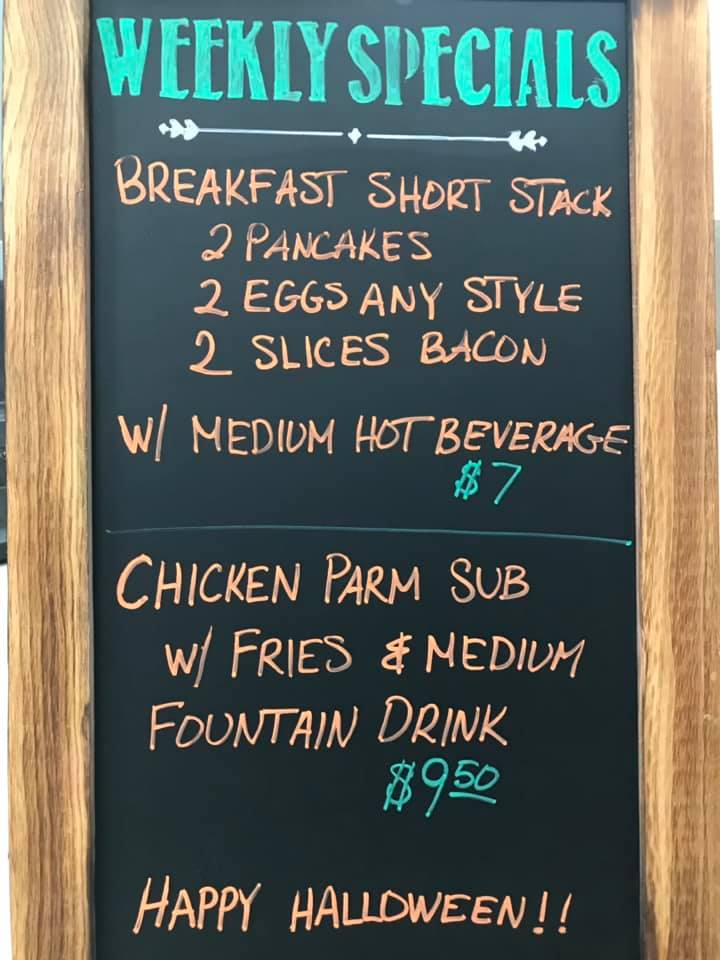 WEEKLY SPECIALS
BREAKFAST SHORT STACK
2 PANCAKES
2 EGGS ANY STYLE
2 SLICES BACON
W/ MEDIUM HOT BEVERAGE
$7
CHICKEN PARM SUB
W/ FRIES & MEDIUM
FOUNTAIN DRINK
$9.50
HAPPY HALLOWEEN!!